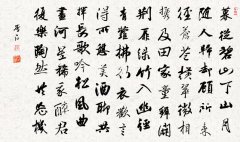 暮從碧山下山月
隨人歸卻顧所來
徑蒼蒼橫翠微相
攜及田家童稚開
荊扉綠竹入幽徑
青蘿拂行衣歡言
得所憩美酒聊共
揮長歌吟松風曲
盡河星稀我醉君
復樂陶然共忘機